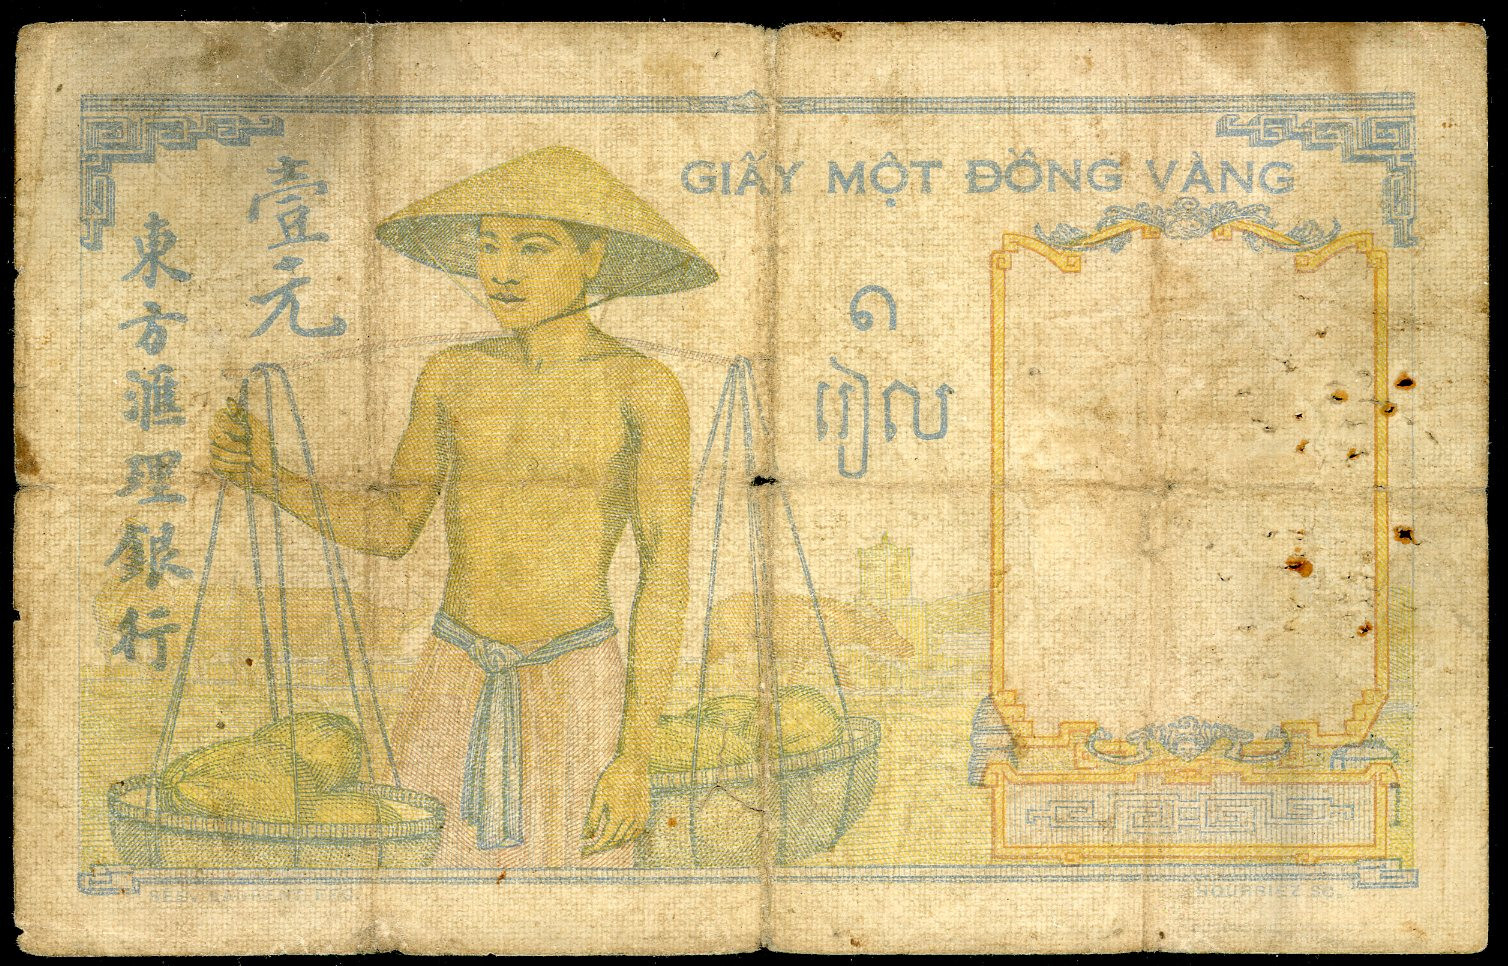 GIẤY MỘT ĐỒNG VÀNG
壹元
東方滙理銀行
១
រៀល
HOURRIEZ SC.